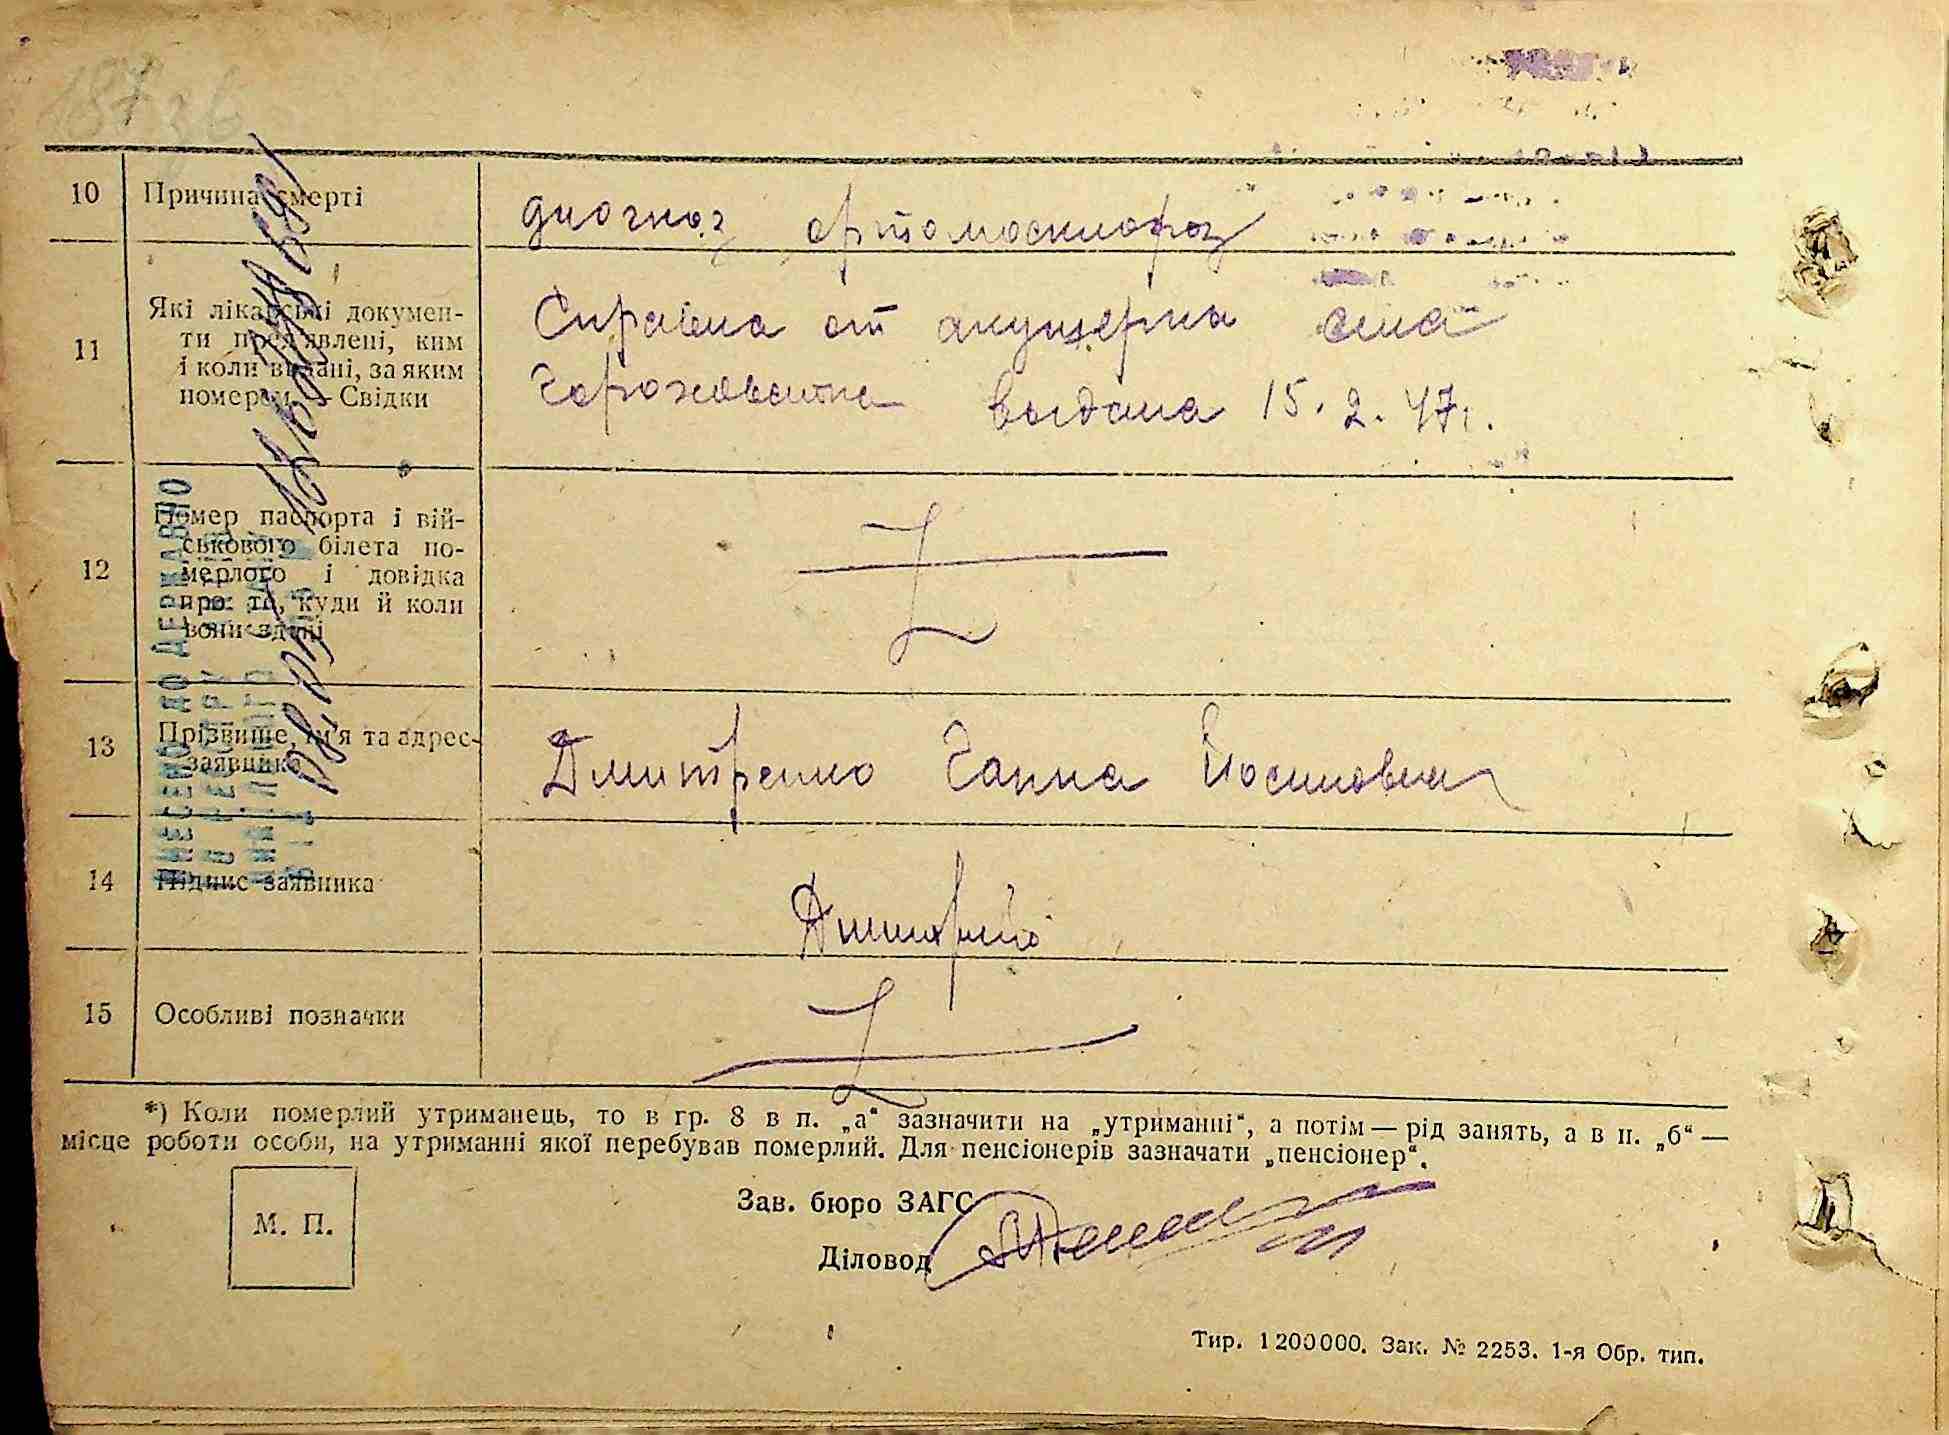 10 Причина смерті
диогноз ортомосклороз
11 Які лікарські докумен-
ти пред'явлені, ким
і коли видані, за яким
номером. — Свідки
Справка от акушерки села
выдана 15.2.47г.
12 Номер паспорта і вій-
ськового білета по-
мерлого і довідка
про те, куди й коли
вони здані
13 Прізвище, ім'я та адрес
заявника
Дмитренко Ганна Йосиповна
14 Підпис заявника
15 Особливі позначки
*) Коли померлий утриманець, то в гр. 8 в п. „а“ зазначити на „утриманні“, а потім — рід занять, а в п. „б“ —
місце роботи особи, на утриманні якої перебував померлий. Для пенсіонерів зазначати „пенсіонер“.
М. П.
Зав. бюро ЗАГС
Діловод
Тир. 1200000. Зак. № 2253. 1-я Обр. тип.
ВНЕСЕНО ДО ДЕРЖАВНО